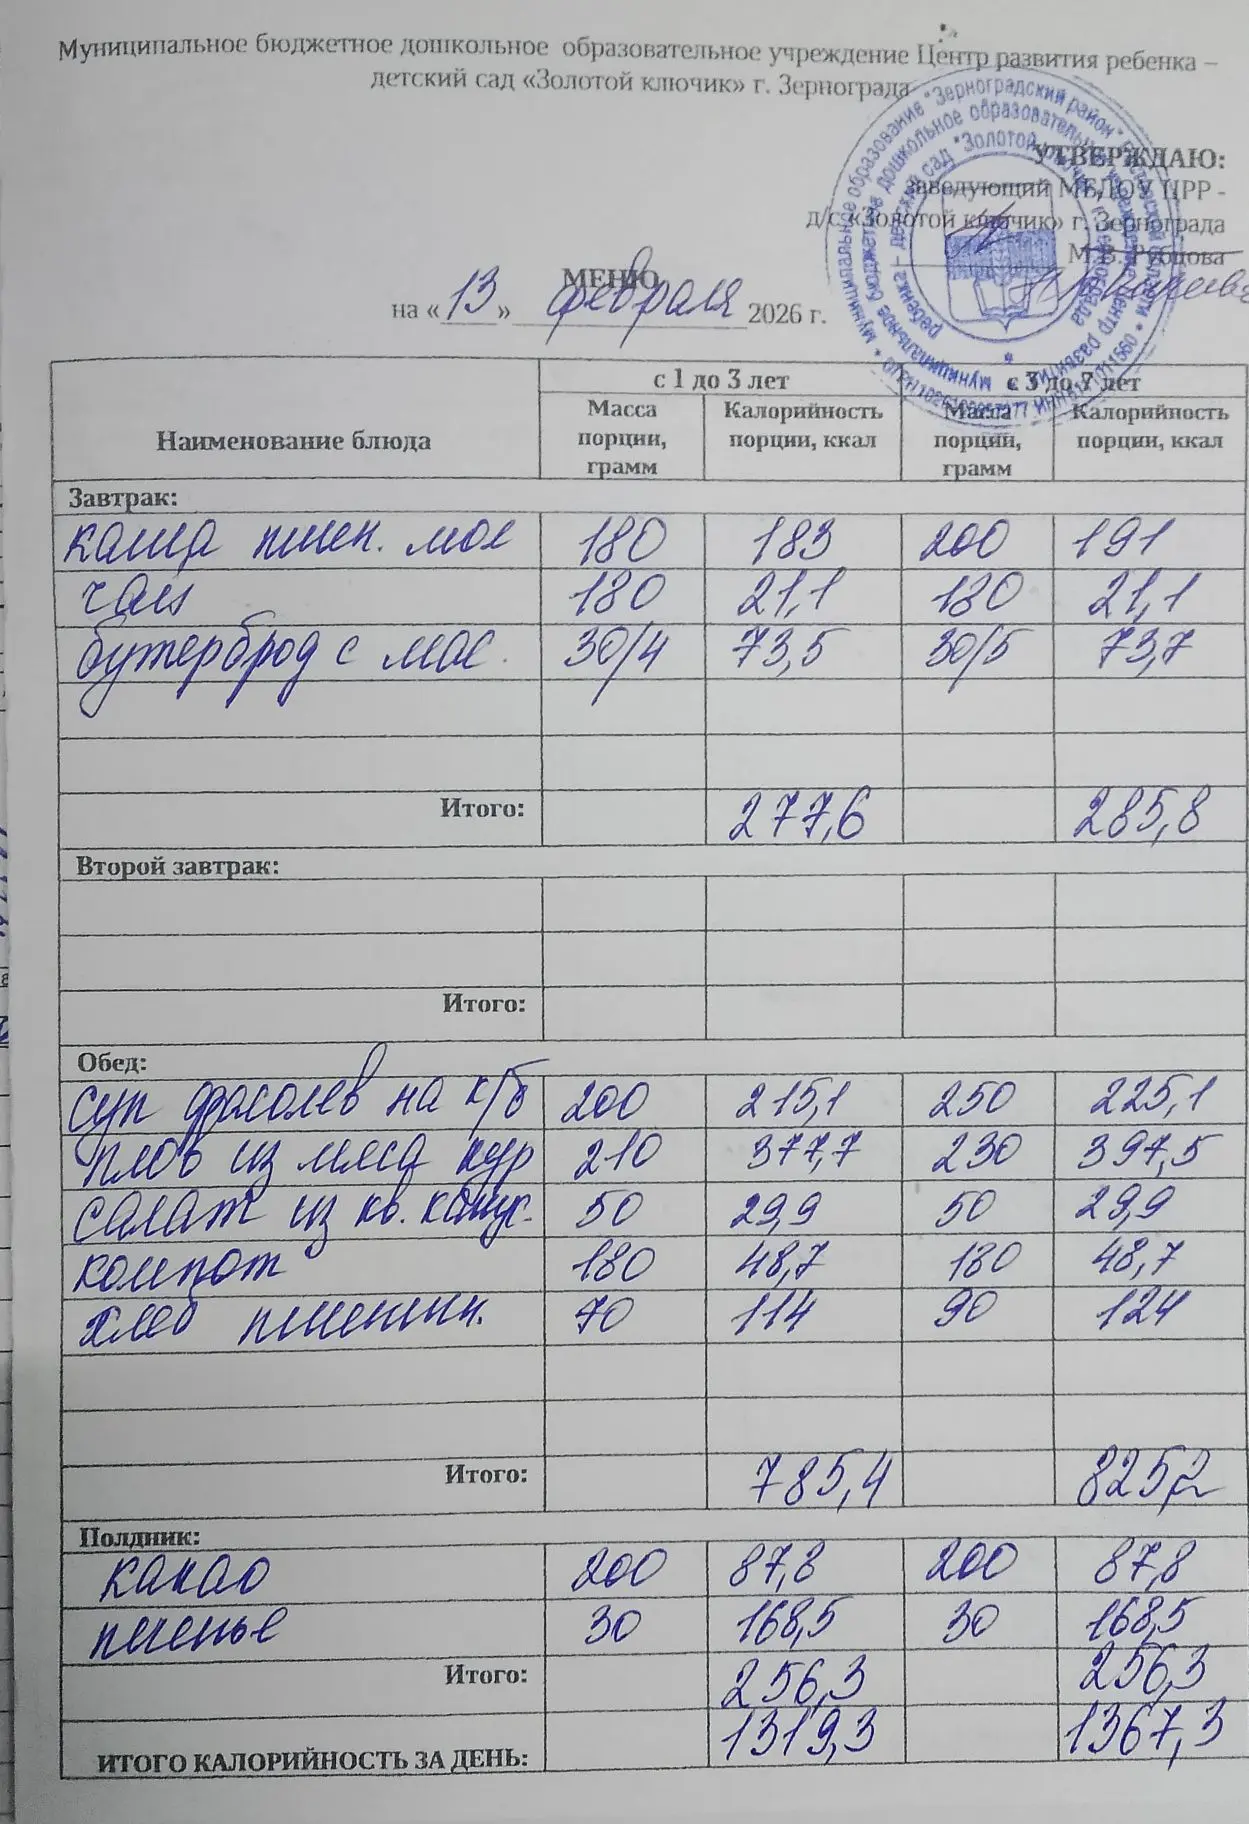 Муниципальное бюджетное дошкольное образовательное учреждение Центр развития ребенка –
детский сад «Золотой ключик» г. Зернограда
УТВЕРЖДАЮ:
заведующий МБДОУ ЦРР -
д/с «Золотой ключик» г. Зернограда
М.В. Рубцова
МЕНЮ
на «13» февраля 2026 г.
Наименование блюда с 1 до 3 лет с 3 до 7 лет
Масса порции, грамм Калорийность порции, ккал Масса порции, грамм Калорийность порции, ккал
Завтрак:
каша пшен. мол 180 183 200 191
чай 180 21,1 180 21,1
бутерброд с мас. 30/4 73,5 30/5 73,7
Итого: 277,6 285,8
Второй завтрак:
Итого:
Обед:
суп фасолев на к/б 200 215,1 250 225,1
плов из мяса кур 210 377,7 230 397,5
салат из кв. капус. 50 29,9 50 29,9
компот 180 48,7 180 48,7
хлеб пшеничн. 70 114 90 124
Итого: 785,4 825,2
Полдник:
какао 200 87,8 200 87,8
печенье 30 168,5 30 168,5
Итого: 256,3 256,3
ИТОГО КАЛОРИЙНОСТЬ ЗА ДЕНЬ: 1319,3 1367,3